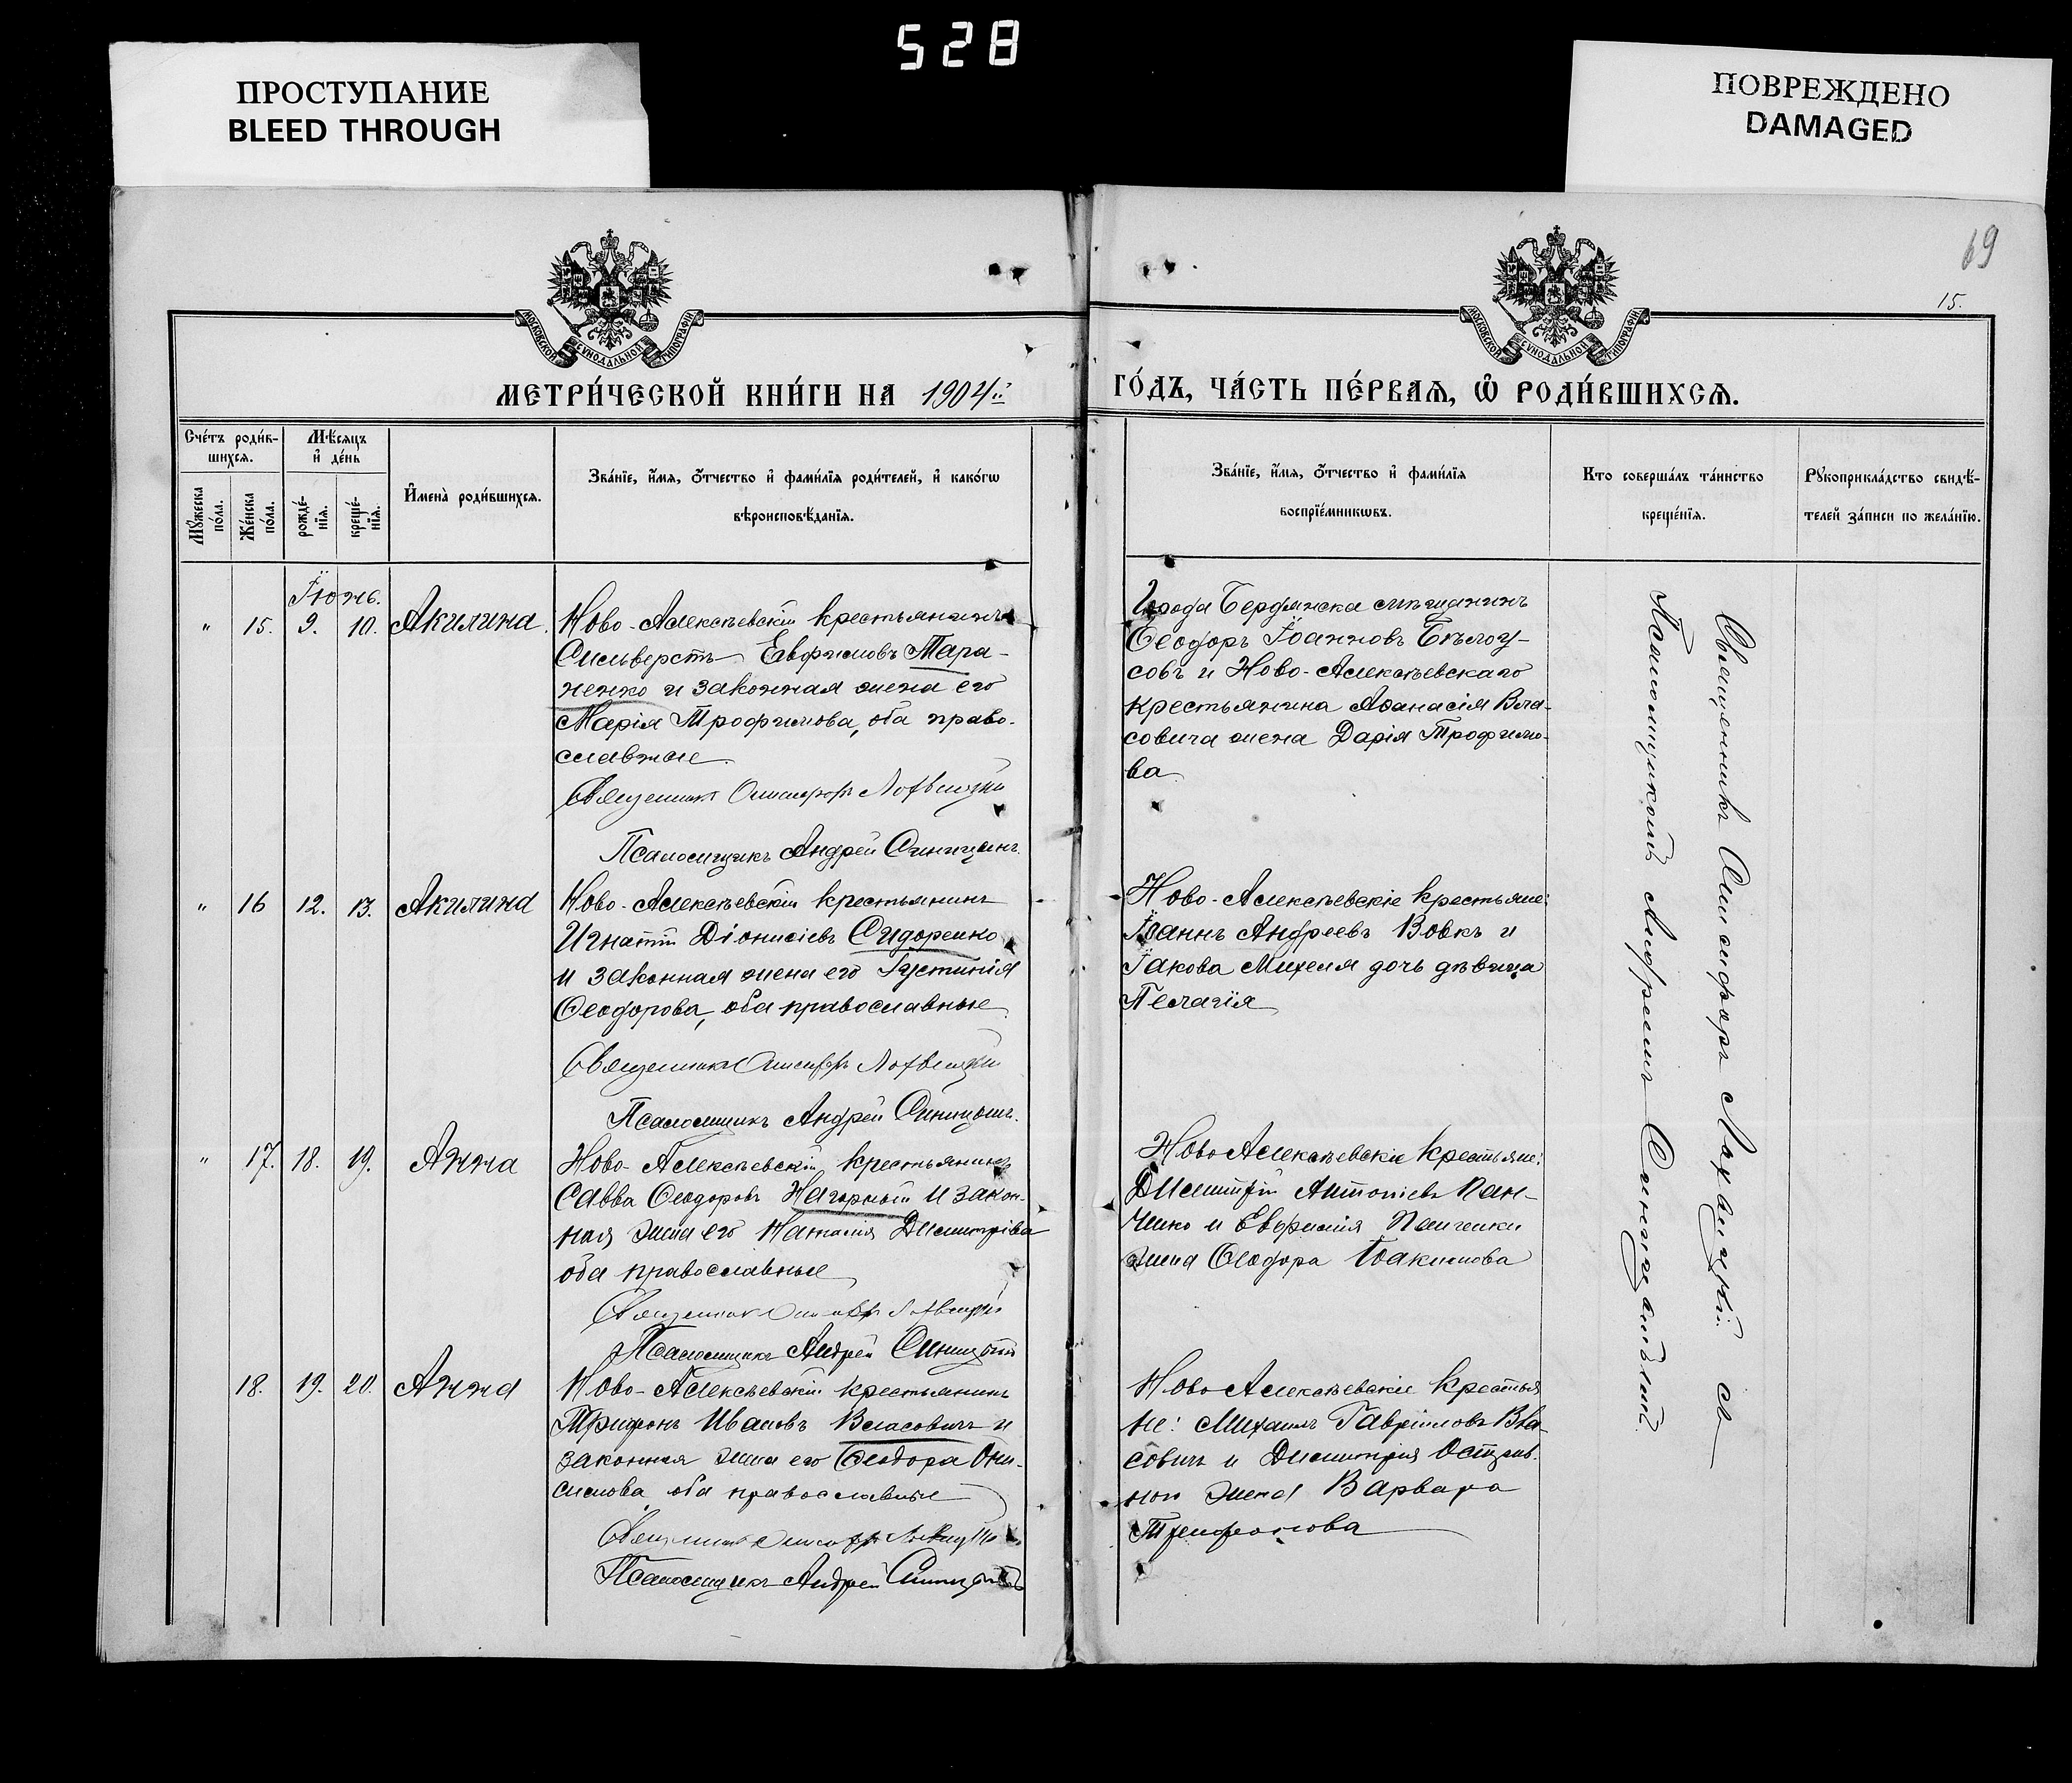 528
ПРОСТУПАНИЕ
BLEED THROUGH
ПОВРЕЖДЕНО
DAMAGED
69
15.
МОСКОВСКОЙ СѴНОДАЛЬНОЙ ТИПОГРАФІИ
МОСКОВСКОЙ СѴНОДАЛЬНОЙ ТИПОГРАФІИ
МЕТРИ́ЧЕСКОЙ КНИ́ГИ НА 1904й
ГО́ДЪ, ЧА́СТЬ ПЕ́РВАѦ, Ѡ҆ РОДИ́ВШИХСѦ.
Сче́тъ роди́в-
шихсѧ.
Мѣ́сѧцъ
и҆ де́нь
Мꙋ́жеска
по́ла.
Же́нска
по́ла.
рожде́-
нїѧ.
креще́-
нїѧ.
И҆мена̀ роди́вшихсѧ.
Зва́нїе, и҆́мѧ, о҆́тчество и҆ фами́лїѧ роди́телей, и҆ како́гѡ
вѣроисповѣ́данїѧ.
Зва́нїе, и҆́мѧ, о҆́тчество и҆ фами́лїѧ
воспрїе́мникѡвъ.
Кто соверша́лъ та́инство
креще́нїѧ.
Рꙋкоприкла́дство свидѣ́-
телей за́писи по жела́нїю.
Іюнь.
" 15. 9. 10. Акилина.
Ново-Алексѣевскій крестьянинъ
Сильверстъ Евфимовъ Тара-
ненко и законная жена его
Марія Трофимова, оба право-
славные
Священникъ Онисифоръ Лохвицкій
Псаломщикъ Андрей Синицкій
Города Бердянска мѣщанинъ
Ѳеодоръ Іоанновъ Бѣлоу-
совъ и Ново-Алексѣевскаго
крестьянина Аѳанасія Вла-
совича жена Дарія Трофимо-
ва
" 16 12. 13. Акилина
Ново-Алексѣевскій крестьянинъ
Игнатій Діонисіевъ Сидоренко
и законная жена его Іустинія
Ѳеодорова, оба православные
Священникъ Онисифоръ Лохвицкій
Псаломщикъ Андрей Синицкій
Ново-Алексѣевскіе крестьяне:
Іоаннъ Андреевъ Вовкъ и
Іакова Михеля дочь дѣвица
Пелагія
" 17. 18. 19. Анна
Ново-Алексѣевскій крестьянинъ
Савва Ѳеодоровъ Нагорный и закон-
ная жена его Наталія Димитріева
оба православные
Священникъ Онисифоръ Лохвицкій
Псаломщикъ Андрей Синицкій
Ново Алексѣевскіе крестьяне:
Димитрій Антоніевъ Пан-
ченко и Евфимія Панченки
жена Ѳеодора Іоакимова
18. 19. 20. Анна
Ново-Алексѣевскій крестьянинъ
Трифонъ Ивановъ Власовичъ и
законная жена его Ѳеодора Они-
симова оба православные
Священникъ Онисифоръ Лохвицкій
Псаломщикъ Андрей Синицкій
Ново Алексѣевскіе крестья
не: Михаилъ Гавріиловъ Вла-
совичъ и Димитрія
жена Варвара
Трифонова
Священникъ Онисифоръ Лохвицкій съ
Псаломщикомъ Андреемъ